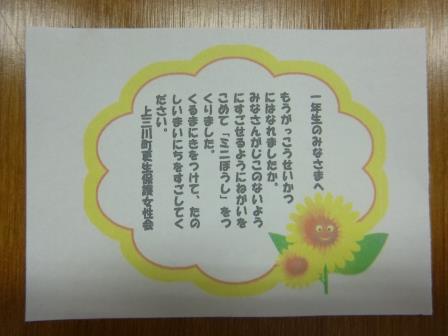 一年生のみなさまへ
もうがっこうせいかつ
にはなれましたか。
みなさんがじこのないよう
にすごせるようにねがいを
こめて「ミニぼうし」をつ
くりました。
くるまにきをつけて、たの
しいまいにちをすごしてく
ださい。
上三川町更生保護女性会